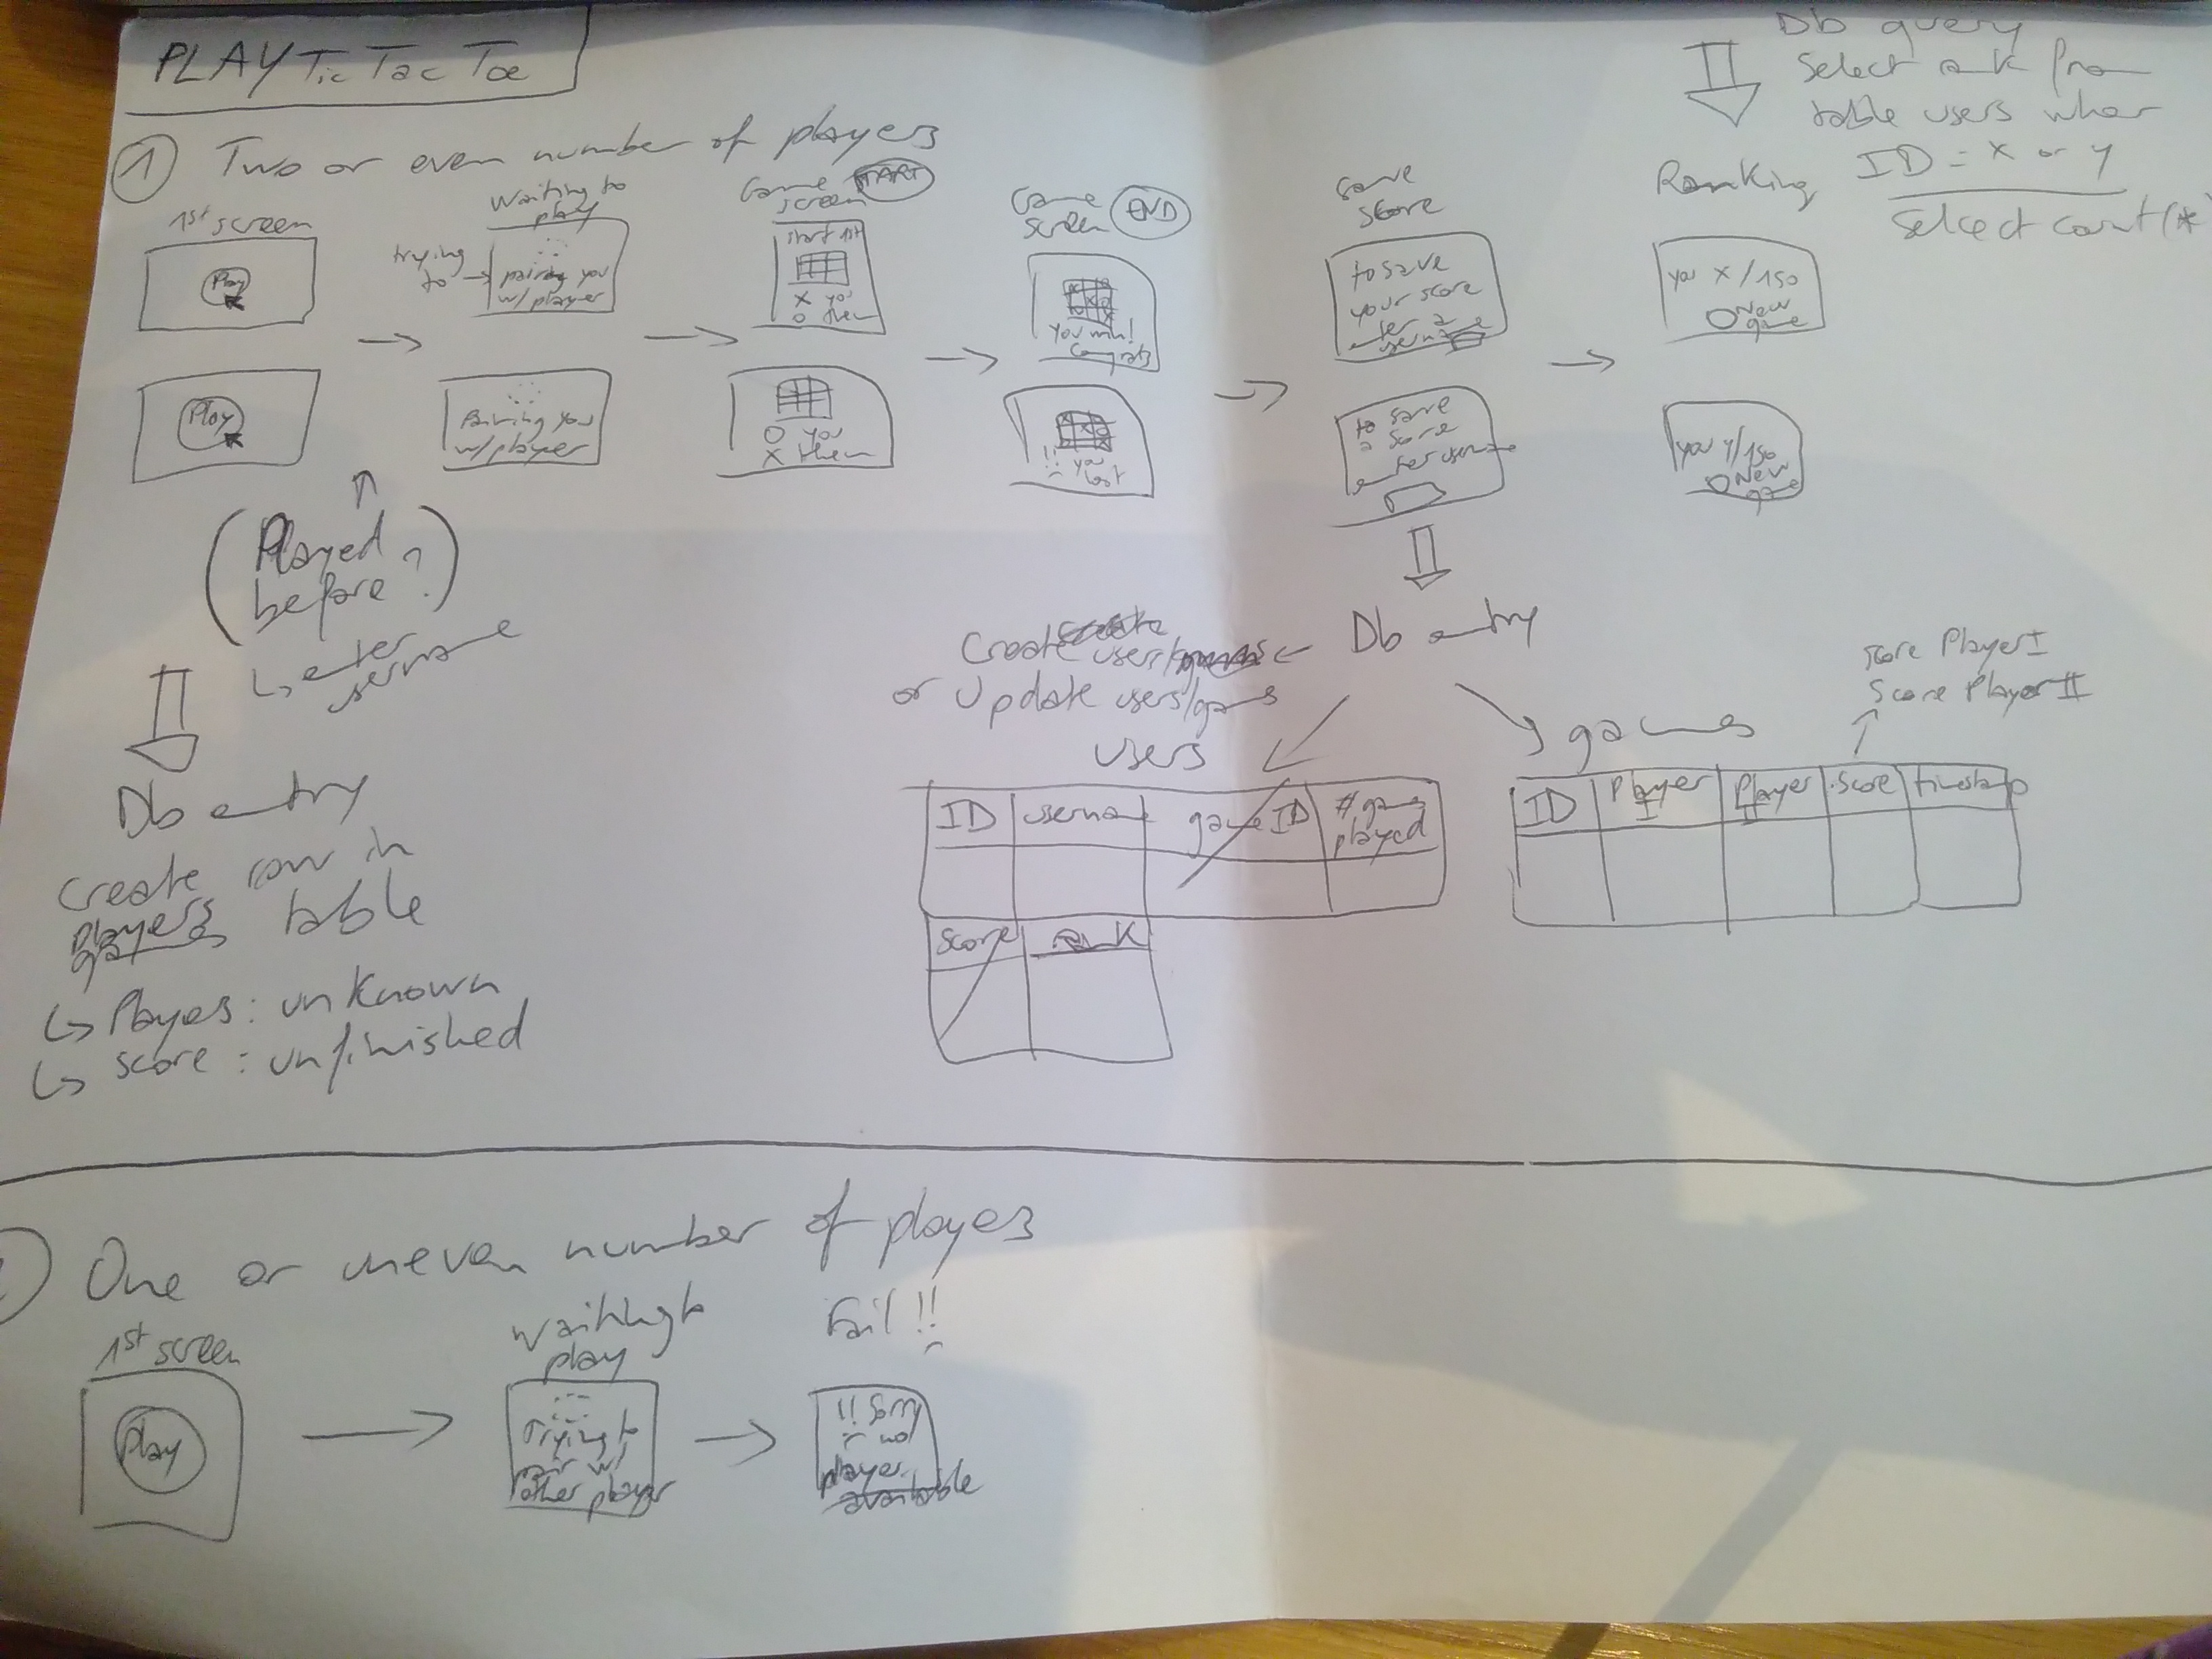 PLAY Tic Tac Toe
1 Two or even number of players
1st screen
Play
Play
Waiting to
play
trying
to
pairing you
w/ player
Pairing you
w/ player
Game
screen START
start 1st
X you
O them
O you
X them
Game
screen END
you win!
Congrats
!! you
lost
Save
score
to save
your score
enter a
username
to save
a score
enter username
Db query
Select rank from
table users wher
ID = x or y
Select count(*
Ranking
you x/150
New
game
you y/150
New
game
(Played
before?)
enter
username
Db entry
Create row in
players table
games
Players: unknown
score: unfinished
Db entry
Create users/
or Update users/games
users
ID username game ID # game
played
score rank
games
Score Player I
Score Player II
ID Player
I Player
II score timestamp
One or uneven number of players
1st screen
Play
Waiting to
play
Trying to
pair w/
other player
Fail!!
!! Sorry
no
player
available